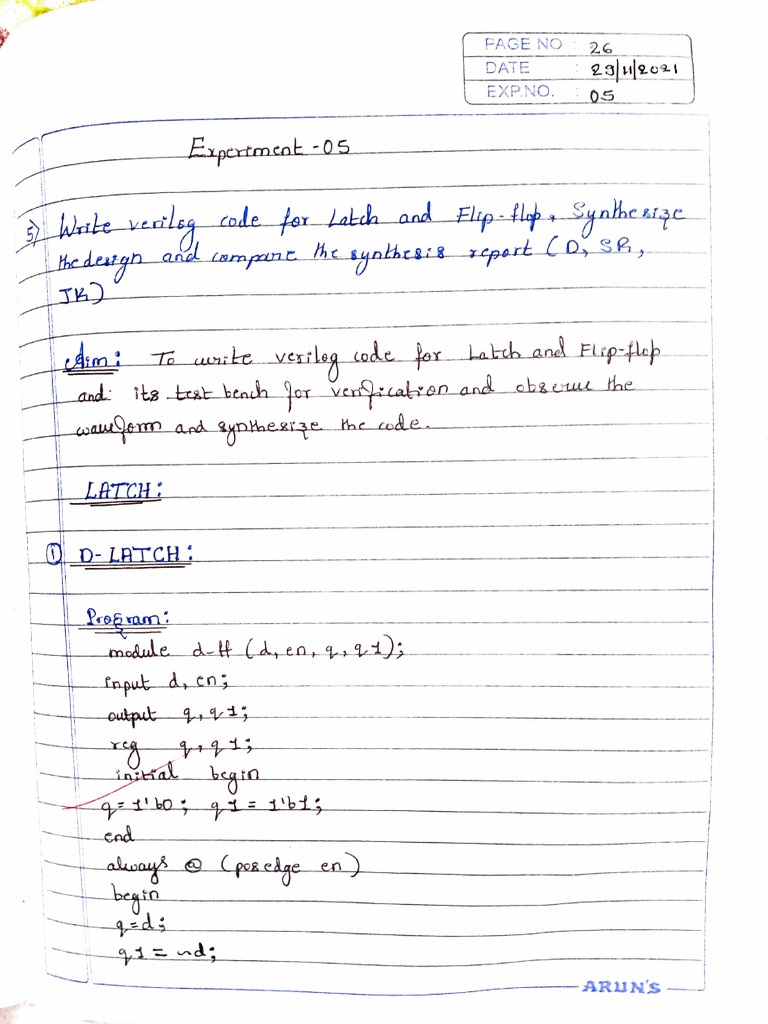 PAGE NO : 26
DATE : 29/11/2021
EXP.NO. : 05
Experiment - 05
5) Write verilog code for Latch and Flip-flop, Synthesize
the design and compare the synthesis report (D, SR,
JK)
Aim: To write verilog code for Latch and Flip-flop
and its test bench for verification and observe the
waveform and synthesize the code.
LATCH:
① D-LATCH:
Program:
module d-ff (d, en, q, q1);
input d, en;
output q, q1;
reg q, q1;
initial begin
q = 1'b0; q1 = 1'b1;
end
always @ (posedge en)
begin
q=d;
q1 = ~d;
ARUN'S